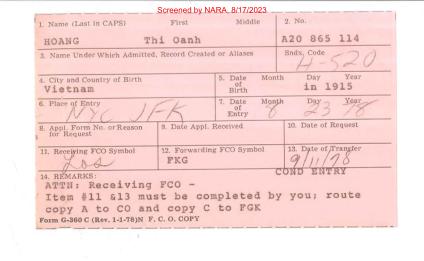 Screened by NARA, 8/17/2023
1. Name (Last in CAPS) First Middle 2. No.
HOANG Thi Oanh A20 865 114
3. Name Under Which Admitted, Record Created or Aliases Sndx. Code
H-520
4. City and Country of Birth 5. Date of Birth Month Day Year
Vietnam in 1915
6. Place of Entry 7. Date of Entry Month Day Year
NYC JFK 8 23 78
8. Appl. Form No. or Reason for Request 9. Date Appl. Received 10. Date of Request
11. Receiving FCO Symbol 12. Forwarding FCO Symbol 13. Date of Transfer
Los FKG 9/11/78
14. REMARKS: COND ENTRY
ATTN: Receiving FCO -
Item #11 &13 must be completed by you; route
copy A to CO and copy C to FGK
Form G-360 C (Rev. 1-1-78)N F. C. O. COPY